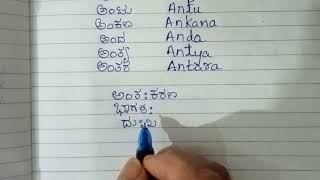 ಅಂಟು Antu
ಅಂಕಣ Ankana
ಅಂದ Anda
ಅಂತ್ಯ Antya
ಅಂತರ Antara
ಅಂತಃಕರಣ
ಭಾಗಶಃ
ದುಃಖ